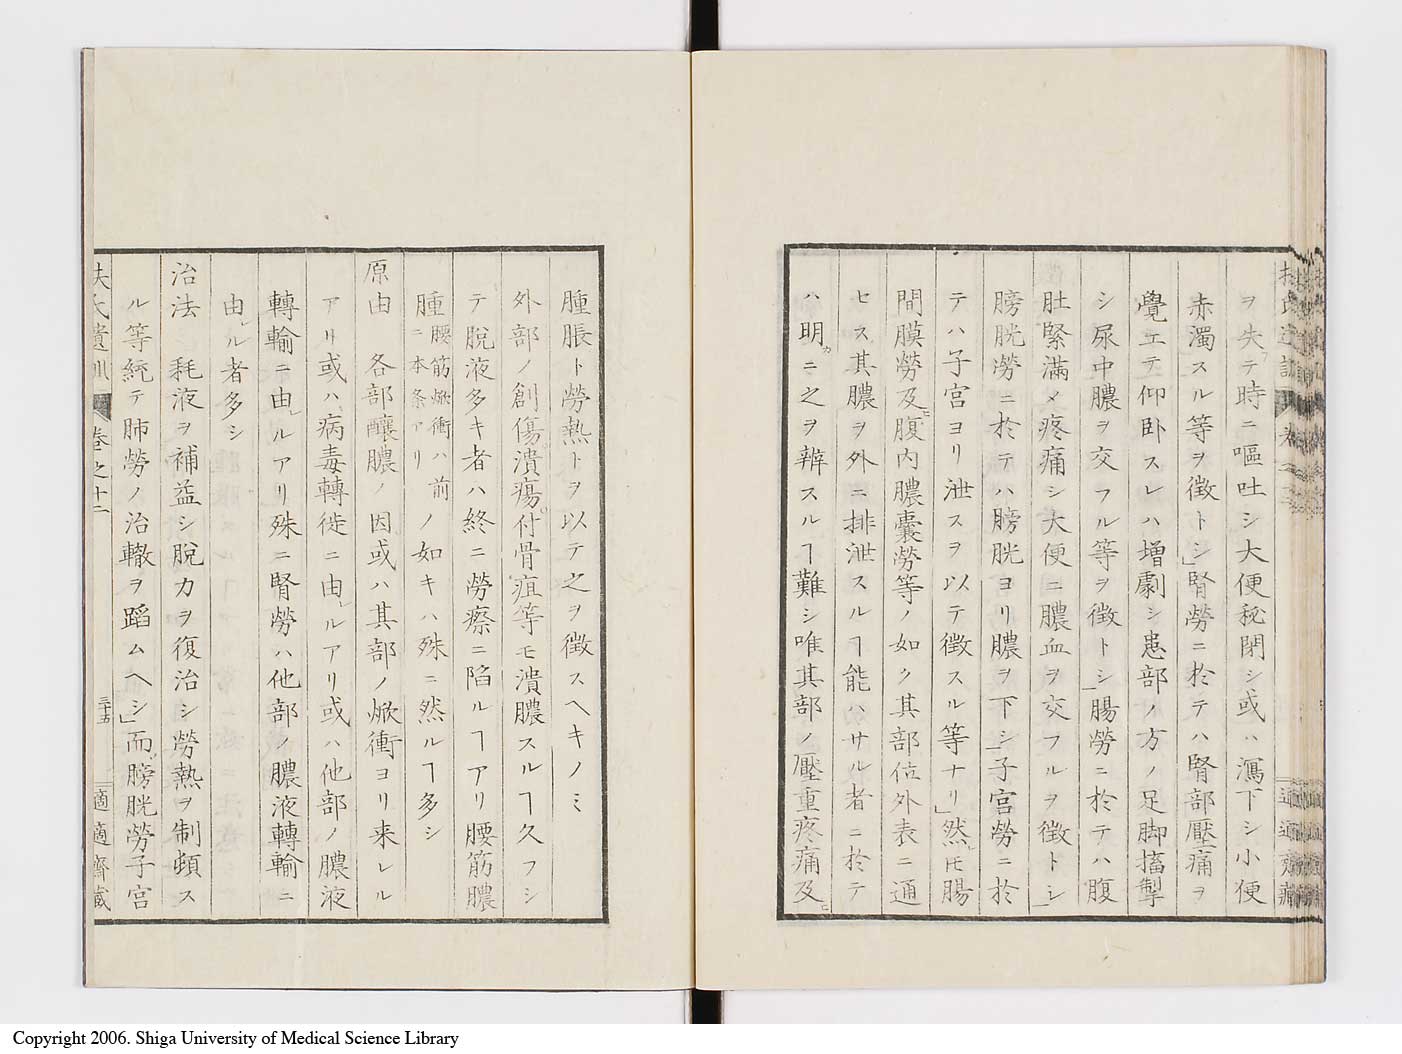 ヲ失テ時ニ嘔吐シ大便秘閉シ或ハ瀉下シ小便
赤濁スル等ヲ徴トシ」腎勞ニ於テハ腎部壓痛ヲ
覺エテ仰卧スレハ増劇シ患部ノ方ノ足脚搐掣
シ尿中膿ヲ交フル等ヲ徴トシ」腸勞ニ於テハ腹
肚緊滿〆疼痛シ大便ニ膿血ヲ交フルヲ徴トシ」
膀胱勞ニ於テハ膀胱ヨリ膿ヲ下シ」子宮勞ニ於
テハ子宮ヨリ泄スヲ以テ徴スル等ナリ」然レ𪜈腸
間膜勞及ヒ腹内膿嚢勞等ノ如ク其部位外表ニ通
セス其膿ヲ外ニ排泄スルヿ能ハサル者ニ於テ
ハ明カニ之ヲ辨スルヿ難シ唯其部ノ壓重疼痛及ヒ
腫脹ト勞熱トヲ以テ之ヲ徴スヘキノミ
外部ノ創傷潰瘍付骨疽等モ潰膿スルヿ久フシ
テ脱液多キ者ハ終ニ勞瘵ニ陷ルヿアリ腰筋膿
腫腰筋焮衝ハ前ニ本条アリノ如キハ殊ニ然ルヿ多シ
原由　各部釀膿ノ因或ハ其部ノ焮衝ヨリ来レル
アリ或ハ病毒轉徙ニ由レルアリ或ハ他部ノ膿液
轉輸ニ由レルアリ殊ニ腎勞ハ他部ノ膿液轉輸ニ
由レル者多シ
治法　耗液ヲ補益シ脱力ヲ復治シ勞熱ヲ制頓ス
ル等統テ肺勞ノ治轍ヲ蹈ムヘシ」而膀胱勞子宮
扶氏遺訓　卷之十二　三十五　適適齋藏